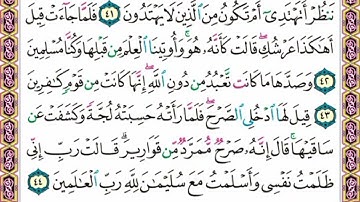 نَنظُرْ أَتَهْتَدِىٓ أَمْ تَكُونُ مِنَ ٱلَّذِينَ لَا يَهْتَدُونَ ٤١ فَلَمَّا جَآءَتْ قِيلَ
أَهَٰكَذَا عَرْشُكِ قَالَتْ كَأَنَّهُۥ هُوَ وَأُوتِينَا ٱلْعِلْمَ مِن قَبْلِهَا وَكُنَّا مُسْلِمِينَ
٤٢ وَصَدَّهَا مَا كَانَت تَّعْبُدُ مِن دُونِ ٱللَّهِ إِنَّهَا كَانَتْ مِن قَوْمٍ كَٰفِرِينَ
٤٣ قِيلَ لَهَا ٱدْخُلِى ٱلصَّرْحَ فَلَمَّا رَأَتْهُ حَسِبَتْهُ لُجَّةً وَكَشَفَتْ عَن
سَاقَيْهَا قَالَ إِنَّهُۥ صَرْحٌ مُّمَرَّدٌ مِّن قَوَارِيرَ قَالَتْ رَبِّ إِنِّى
ظَلَمْتُ نَفْسِى وَأَسْلَمْتُ مَعَ سُلَيْمَٰنَ لِلَّهِ رَبِّ ٱلْعَٰلَمِينَ ٤٤